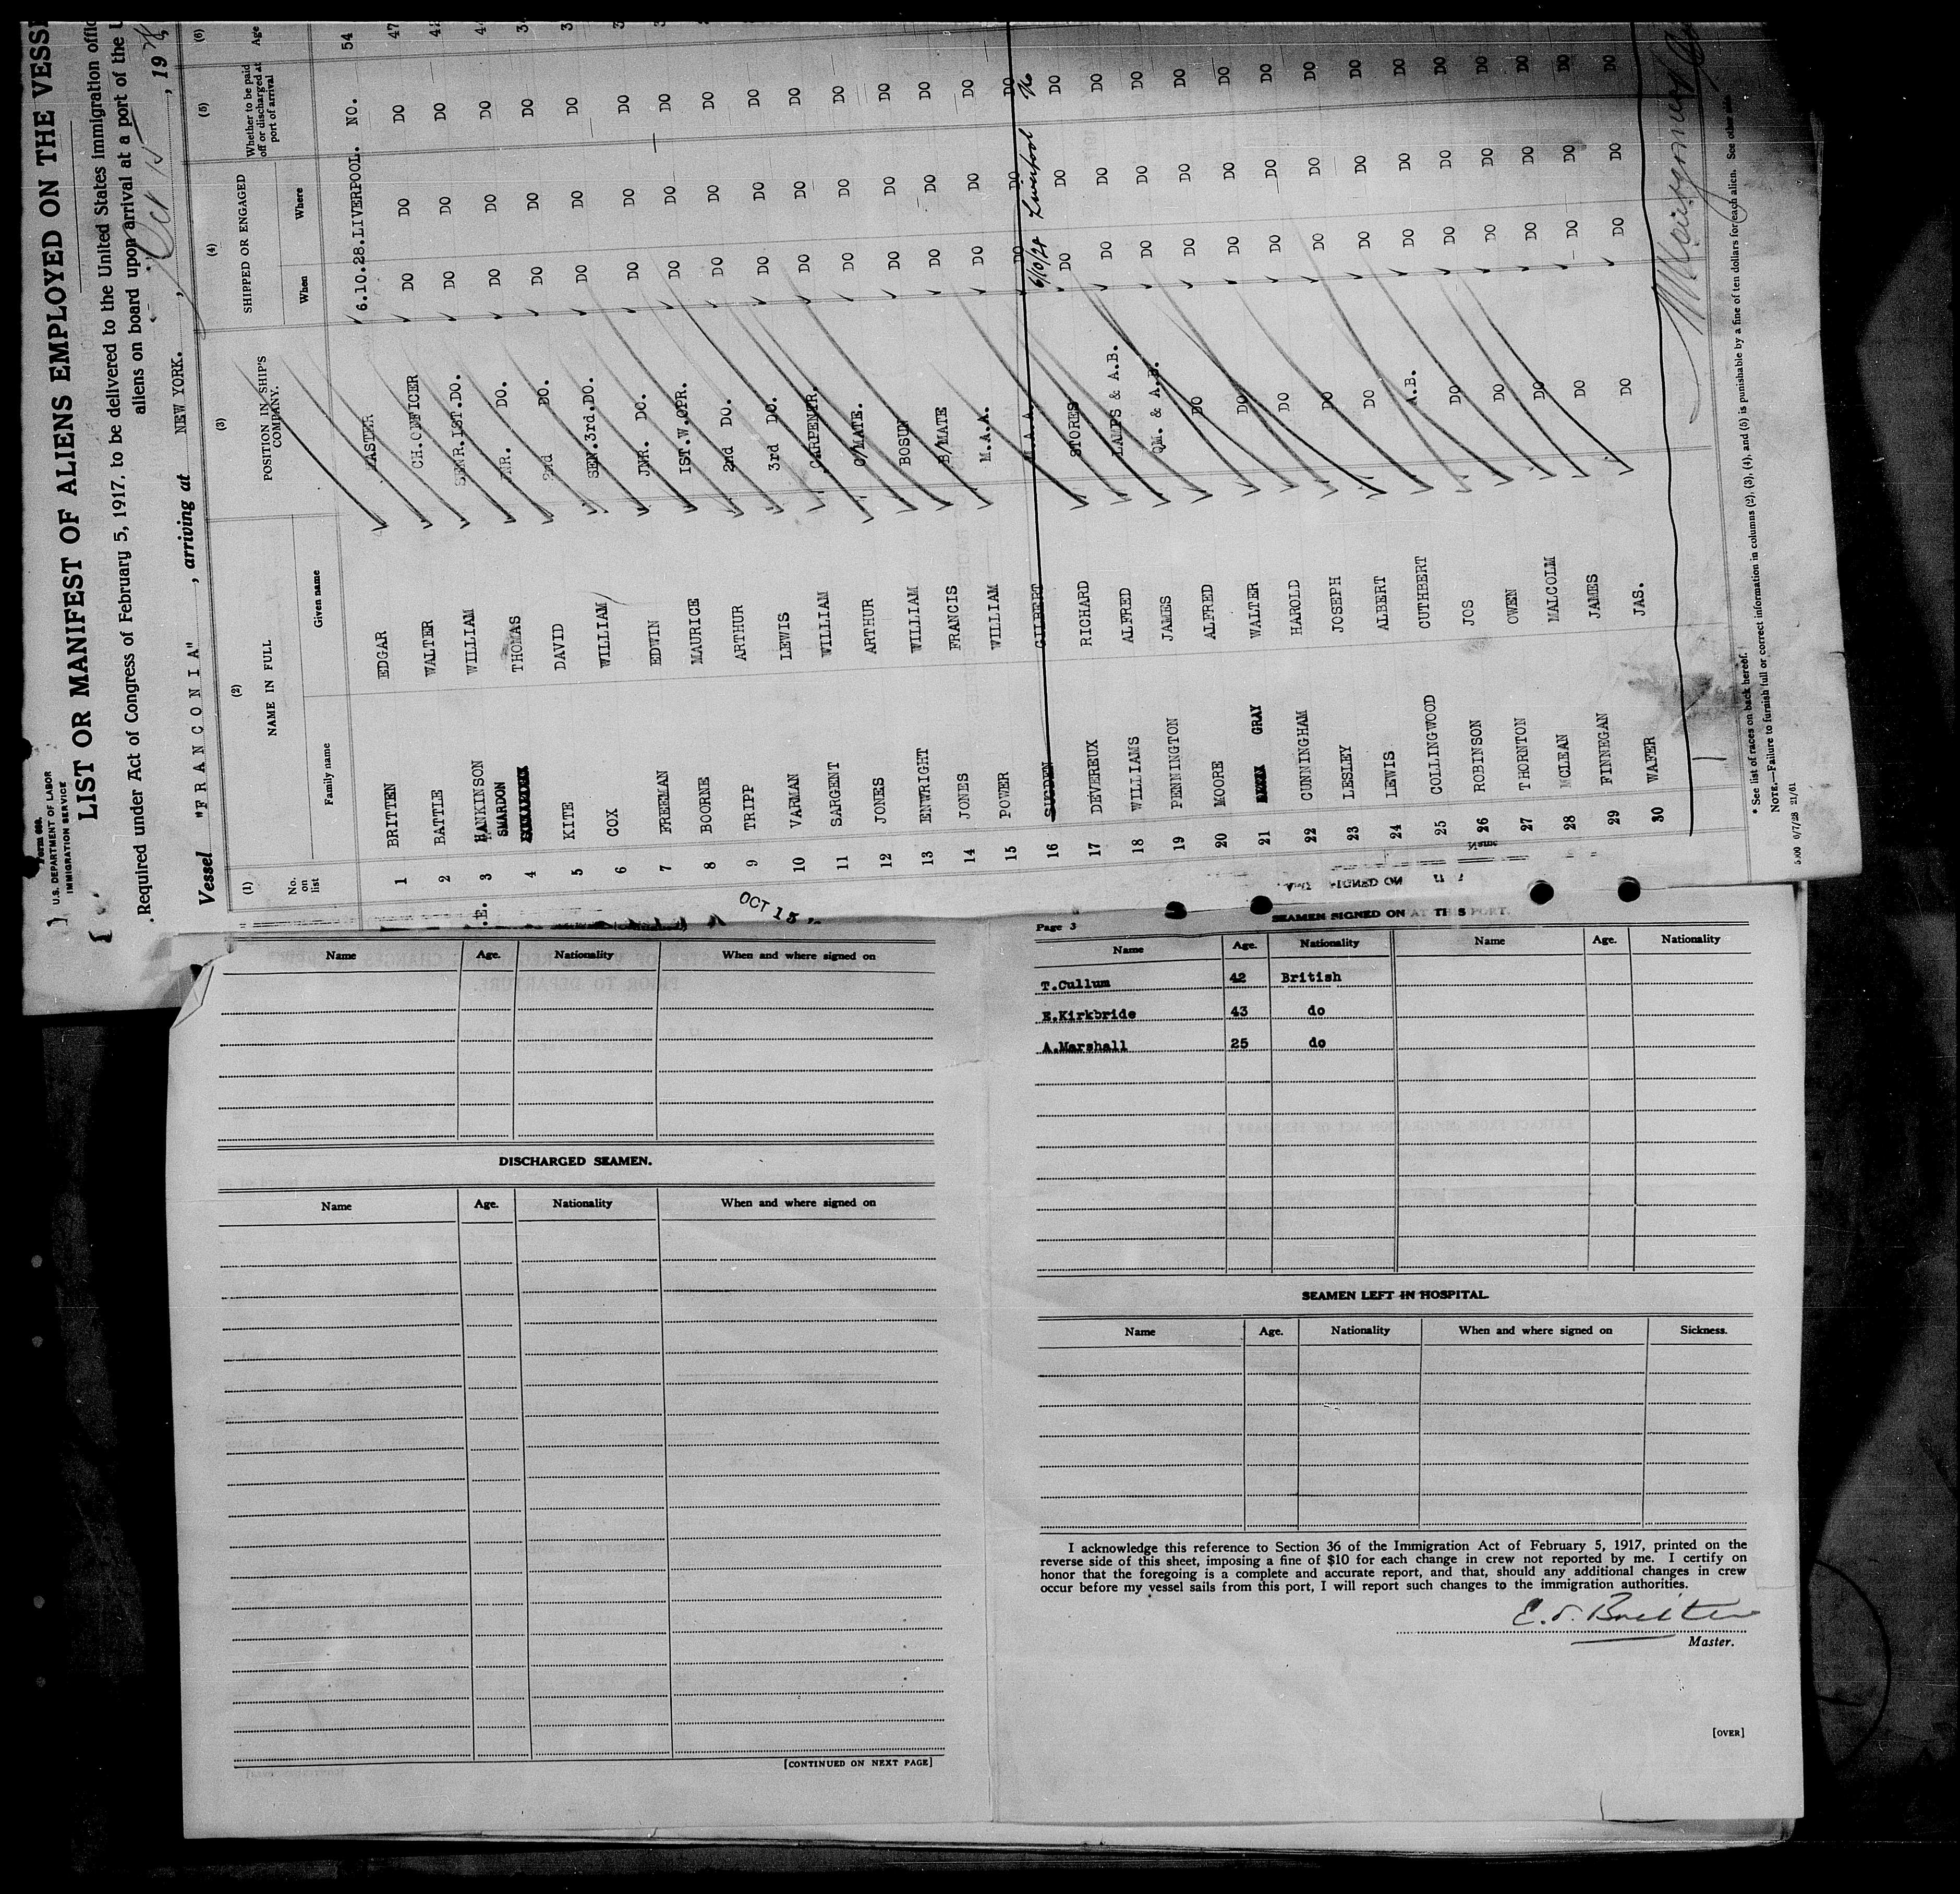 Form 689.
U.S. DEPARTMENT OF LABOR
IMMIGRATION SERVICE
LIST OR MANIFEST OF ALIENS EMPLOYED ON THE VESS
Required under Act of Congress of February 5, 1917, to be delivered to the United States immigration offi
aliens on board upon arrival at a port of the U
Vessel "FRANCONIA", arriving at NEW YORK. , Oct 15 , 1928
(1) (2) (3) (4) (5) (6)
No. on list NAME IN FULL POSITION IN SHIP'S COMPANY. SHIPPED OR ENGAGED Whether to be paid off or discharged at port of arrival Age
Family name Given name When Where
1 BRITTEN EDGAR MASTER 6.10.28. LIVERPOOL. NO. 54
2 BATTLE WALTER CH.OFFICER DO DO DO 47
3 HANKINSON WILLIAM SNR.1ST.DO. DO DO DO
4 SMARDON THOMAS JNR. DO. DO DO DO
5 KITE DAVID 2nd DO. DO DO DO
6 COX WILLIAM SEN.3rd.DO. DO DO DO
7 FREEMAN EDWIN JNR. DO. DO DO DO
8 BOORNE MAURICE IST.W.OPR. DO DO DO
9 TRIPP ARTHUR 2nd DO. DO DO DO
10 VARMAN LEWIS 3rd DO. DO DO DO
11 SARGENT WILLIAM CARPENTR. DO DO DO
12 JONES ARTHUR C/MATE. DO DO DO
13 ENWRIGHT WILLIAM BOSUN DO DO DO
14 JONES FRANCIS B/MATE DO DO DO
15 POWER WILLIAM M.A.A. DO DO DO
16 SUGDEN GILBERT M.A.A. DO DO DO
6/10/28 Liverpool No
17 DEVEREUX RICHARD STORES DO DO DO
18 WILLIAMS ALFRED LAMPS & A.B. DO DO DO
19 PENNINGTON JAMES QM. & A.B. DO DO DO
20 MOORE ALFRED DO DO DO DO
21 GRAY WALTER DO DO DO DO
22 CUNNINGHAM HAROLD DO DO DO DO
23 LESLEY JOSEPH DO DO DO DO
24 LEWIS ALBERT DO DO DO DO
25 COLLINGWOOD CUTHBERT A.B. DO DO DO
26 ROBINSON JOS DO DO DO DO
27 THORNTON OWEN DO DO DO DO
28 MCLEAN MALCOLM DO DO DO DO
29 FINNEGAN JAMES DO DO DO DO
30 WAFER JAS. DO DO DO DO
* See list of races on back hereof.
NOTE.—Failure to furnish full or correct information in columns (2), (3), (4), and (5) is punishable by a fine of ten dollars for each alien. See other side.
OCT 15
Name Age. Nationality When and where signed on
DISCHARGED SEAMEN.
Name Age. Nationality When and where signed on
[CONTINUED ON NEXT PAGE]
Page 3
SEAMEN SIGNED ON AT THIS PORT.
Name Age. Nationality Name Age. Nationality
T.Cullum 42 British
E.Kirkbride 43 do
A.Marshall 25 do
SEAMEN LEFT IN HOSPITAL.
Name Age. Nationality When and where signed on Sickness.
I acknowledge this reference to Section 36 of the Immigration Act of February 5, 1917, printed on the
reverse side of this sheet, imposing a fine of $10 for each change in crew not reported by me. I certify on
honor that the foregoing is a complete and accurate report, and that, should any additional changes in crew
occur before my vessel sails from this port, I will report such changes to the immigration authorities.
E.T. Britten
Master.
[OVER]